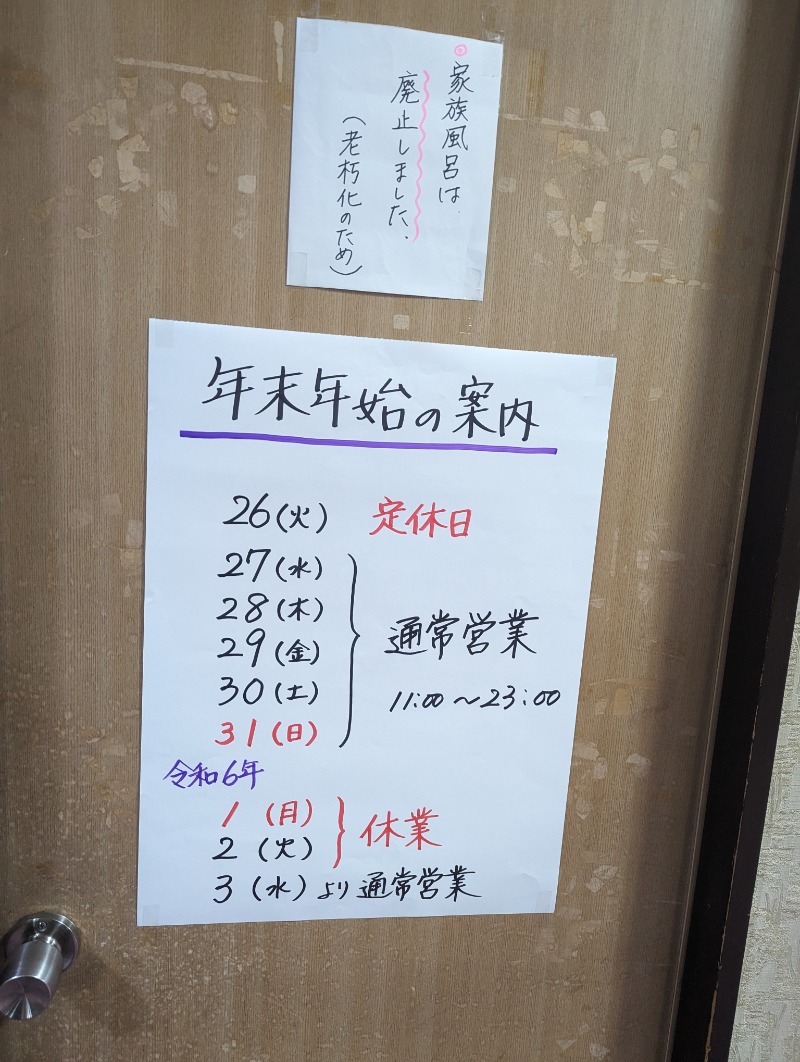 家族風呂は
廃止しました.
(老朽化のため)
年末年始の案内
26(火) 定休日
27(水)
28(木)
29(金)
30(土)
31(日)
通常営業
11:00～23:00
令和6年
1(月)
2(火)
休業
3(水)より通常営業